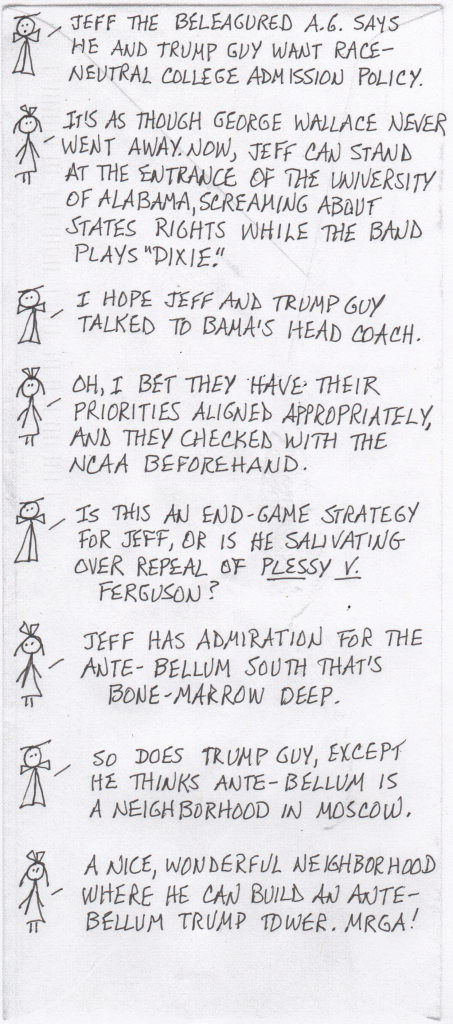 JEFF THE BELEAGURED A.G. SAYS
HE AND TRUMP GUY WANT RACE-
NEUTRAL COLLEGE ADMISSION POLICY.
IT'S AS THOUGH GEORGE WALLACE NEVER
WENT AWAY. NOW, JEFF CAN STAND
AT THE ENTRANCE OF THE UNIVERSITY
OF ALABAMA, SCREAMING ABOUT
STATES RIGHTS WHILE THE BAND
PLAYS "DIXIE."
I HOPE JEFF AND TRUMP GUY
TALKED TO BAMA'S HEAD COACH.
OH, I BET THEY HAVE THEIR
PRIORITIES ALIGNED APPROPRIATELY,
AND THEY CHECKED WITH THE
NCAA BEFOREHAND.
IS THIS AN END-GAME STRATEGY
FOR JEFF, OR IS HE SALIVATING
OVER REPEAL OF PLESSY V.
FERGUSON?
JEFF HAS ADMIRATION FOR THE
ANTE-BELLUM SOUTH THAT'S
BONE-MARROW DEEP.
SO DOES TRUMP GUY, EXCEPT
HE THINKS ANTE-BELLUM IS
A NEIGHBORHOOD IN MOSCOW.
A NICE, WONDERFUL NEIGHBORHOOD
WHERE HE CAN BUILD AN ANTE-
BELLUM TRUMP TOWER. MRGA!